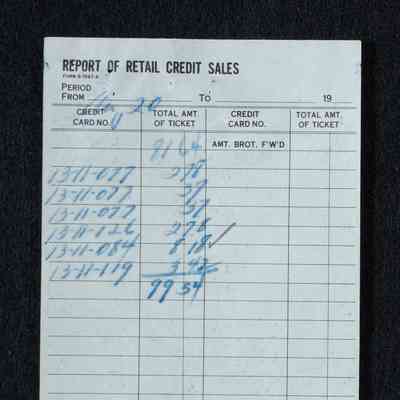 REPORT OF RETAIL CREDIT SALES
PERIOD
FROM 20 TO 19
CREDIT CARD NO. TOTAL AMT OF TICKET CREDIT CARD NO. TOTAL AMT. OF TICKET
81 64 AMT. BROT. F'W'D
13-11-077 2 78
13-11-077 37
13-11-077 37
13-11-126 2 78
13-11-084 8 18 ✓
13-11-119 3 42
99 54